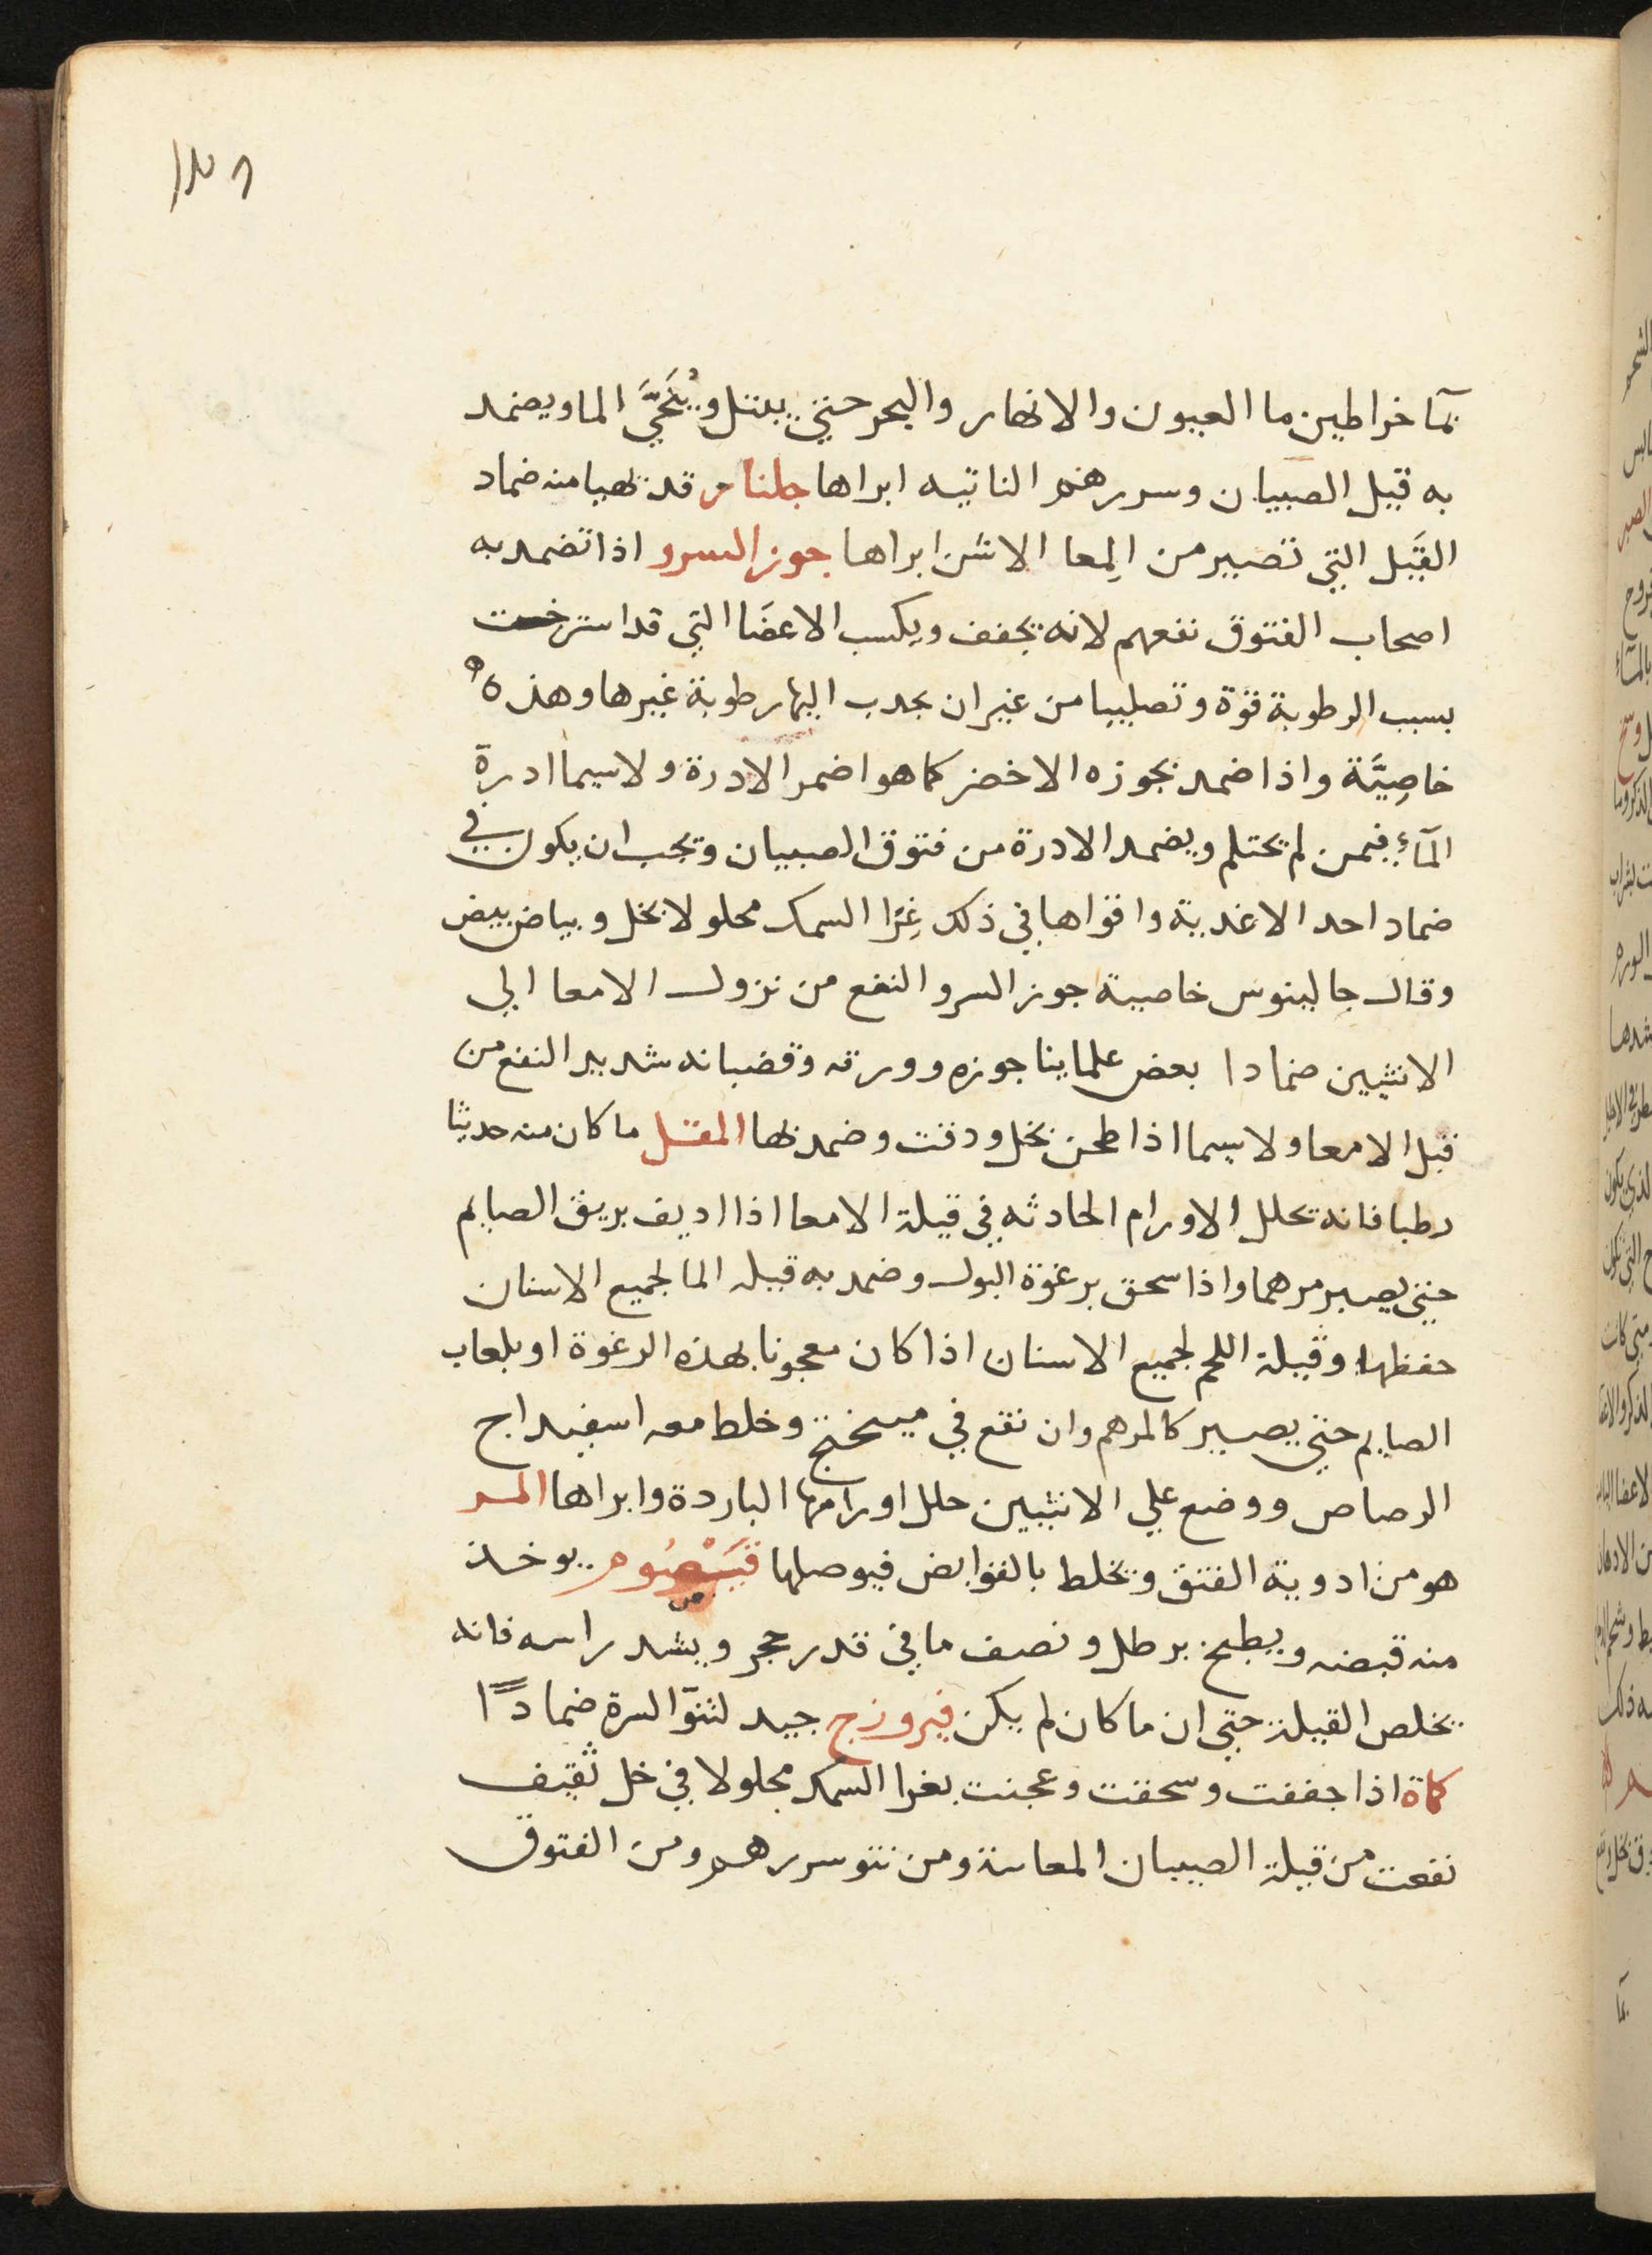 بمآ خراطين ما العيون والانهار والبحر حتي يبتل ويُنَحَّيَ الما ويضمد
به قيل الصبيان وسررهم الناتيه ابراها جلنار قد تهيا منه ضماد
القَيل التي تصير من المِعا الاثنى ابراها جوز السرو اذا تضمد به
اصحاب الفتوق نفعهم لانه يجفف ويكسب الاعضَا التي قد استرخت
بسبب الرطوبة قوّة وتصليبا من غير ان يجدب اليها رطوبة غيرها وهذه
خاصِيَّة واذا ضمد بجوزه الاخضر كما هو اضمر الادرة ولاسيما ادرة
المآءِ فيمن لم يحتلم ويضمد الادرة من فتوق الصبيان ويجب ان يكون في
ضماد احد الاغدية واقواها في ذلك غِرَا السمك محلولا بخل وبياض بيض
وقال جالينوس خاصية جوز السرو النفع من نزول الامعا الي
الانثيين ضمادا بعض علماينا جوزه وورقه وقضبانه شديد النفع من
قبل الامعا ولاسيما اذا طحن بخل ودقت وضمد بها المقل ما كان منه حديثا
رطبا فانه يحلل الاورام الحادثه في قيلة الامعا اذا اديف بريق الصايم
حتي يصير مرهما واذا سحق برغوة البول وضمد به قيله الما لجميع الاسنان
حفظها وقيلة اللحم لجميع الاسنان اذا كان معجونا بهذه الرغوة او بلعاب
الصايم حتي يصير كالمرهم وان نقع في ميبختج وخلط معه اسفيداج
الرصاص ووضع علي الانثيين حلل اورامها الباردة وابراها المر
هو من ادوية الفتق ويخلط بالقوابض فيوصلها قيصوم يوخذ
منه قبضه ويطبخ برطل ونصف ما في قدر حجر ويشد راسه فانه
يخلص القيلة حتي ان ما كان لم يكن فيروزج جيد لنتوّ السرة ضمادًا
كماة اذا جففت وسحقت وعجنت بغرا السمك محلولا في خل ثقيف
نفعت من قيلة الصبيان المعاىىة ومن نتو سررهم ومن الفتوق